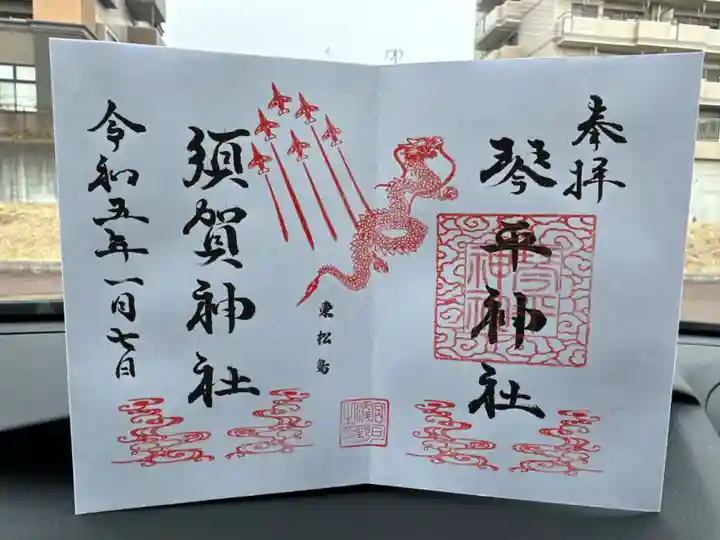 奉拝
琴平神社
東松島
須賀神社
令和五年一月七日